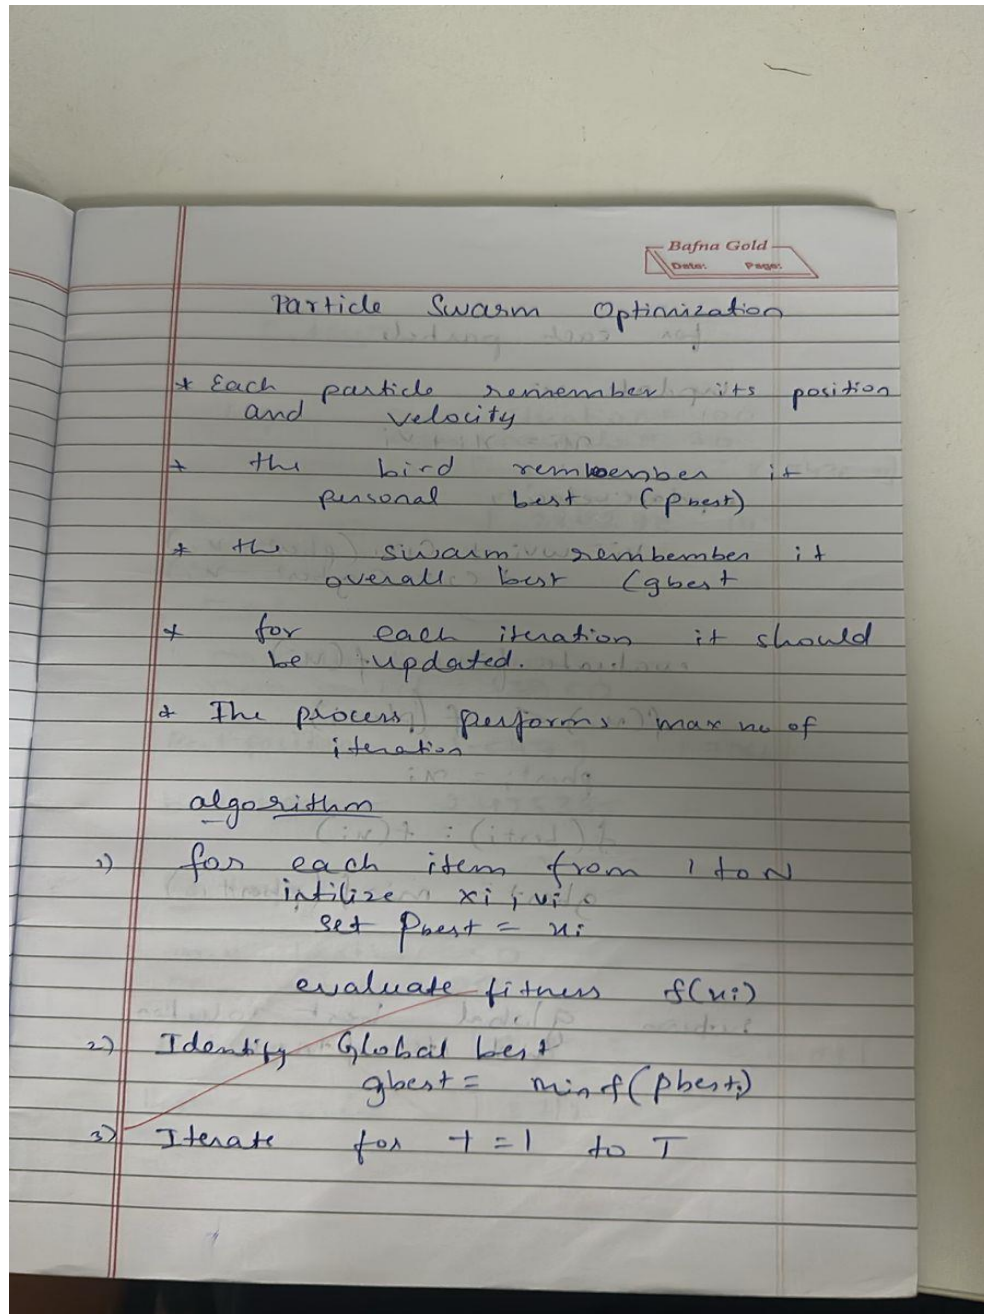 Bafna Gold
Date: Page:
Particle Swarm Optimization
* Each particle remember its position
and velocity
* the bird remember it
personal best (pbest)
* the swarm rembember it
overall best (gbest
* for each iteration it should
be updated.
* The process performs max no of
iteration
algorithm
1) for each item from 1 to N
intilize xi, vi
set Pbest = xi
evaluate fitness f(xi)
2) Identify Global best
gbest = min f(pbesti)
3) Iterate for t = 1 to T